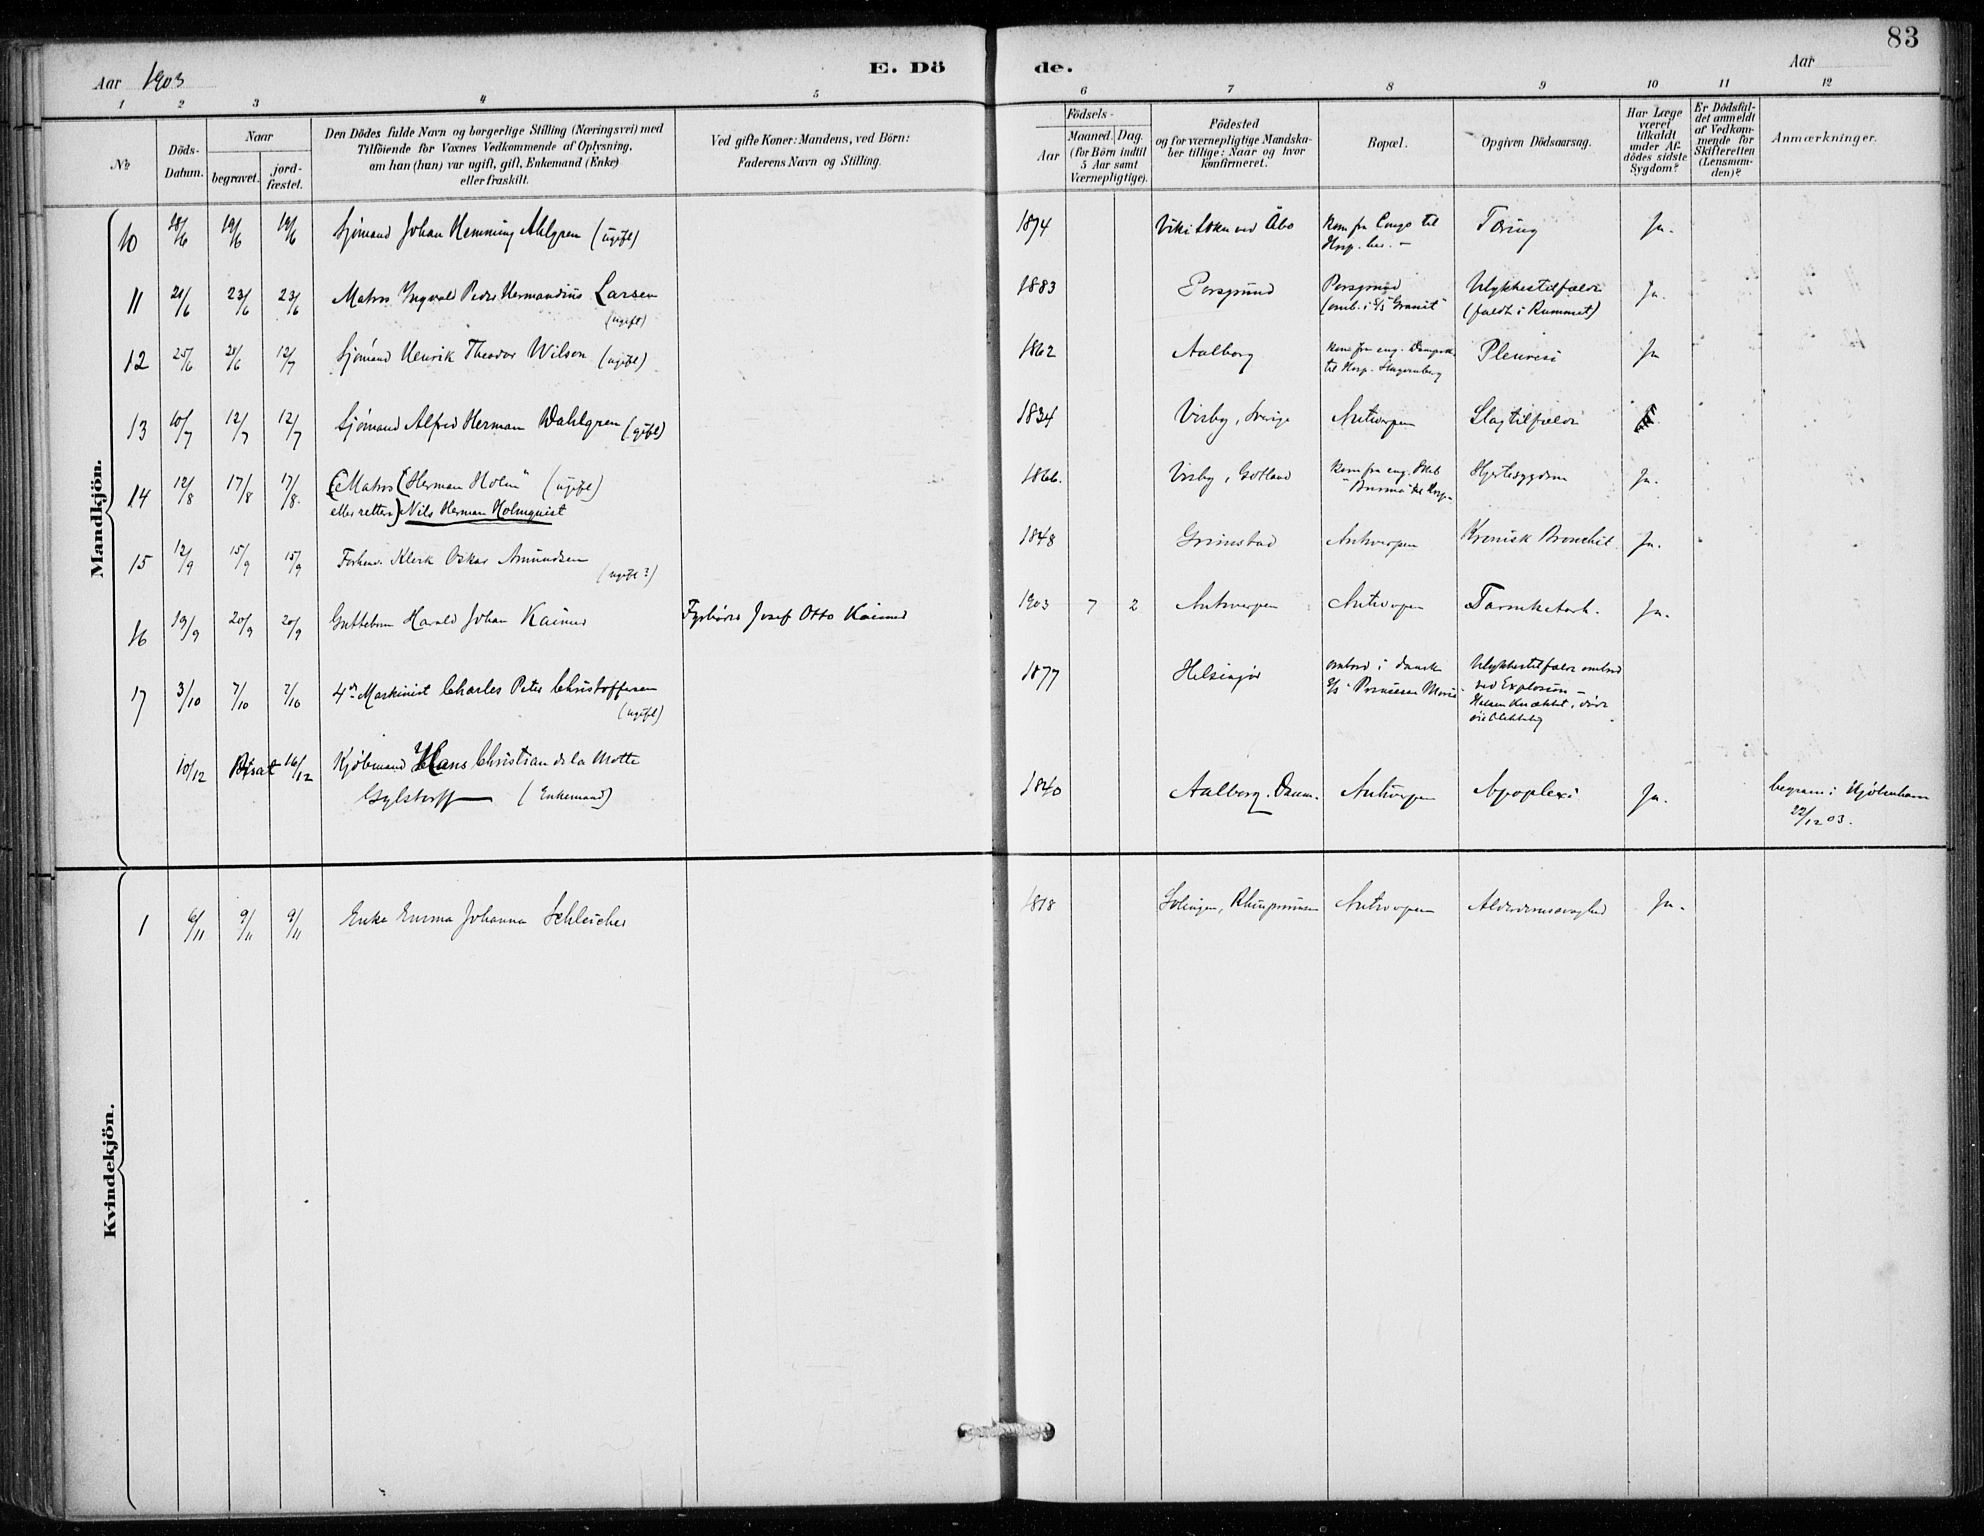 83
Aar 1903
E. Dö
de.
Aar
1 2 3 4 5 6 7 8 9 10 11 12
No
Döds-Datum.
Naar
begravet.
jord-fæstet.
Den Dödes fulde Navn og borgerlige Stilling (Næringsvei) med
Tilföiende for Voxnes Vedkommende af Oplysning,
om han (hun) var ugift, gift, Enkemand (Enke)
eller fraskilt.
Ved gifte Koner: Mandens, ved Börn:
Faderens Navn og Stilling.
Födsels-
Aar
Maaned. Dag.
(for Börn indtil
5 Aar samt
Værnepligtige).
Födested
og for værnepligtige Mandska-
ber tillige: Naar og hvor
konfirmeret.
Bopæl.
Opgiven Dödsaarsag.
Har Læge
været
tilkaldt
under Af-
dödes sidste
Sygdom?
Er Dödsfal-
det anmeldt
af Vedkom-
mende for
Skifteretten
(Lensman-
den)?
Anmærkninger.
Mandkjön.
10 18/6 19/6 19/6 Sjömand Johan Hemming Ahlgren (ugift) 1874 Åbo Kom fra Congo til Hosp. her. – Tæring Ja.
11 21/6 23/6 23/6 Matros Yngvald Peder Hermandius Larsen (ugift) 1883 Porsgrund Porsgrund (omb. i S/S "Granit" Ulykkestilfælde (faldt i Rummet) Ja.
12 25/6 28/6 12/7 Sjömand Henrik Theodor Wilson (ugift) 1862 Aalborg Kom fra eng. Dampsk. til Hosp. Stuyvenberg Pleuresi Ja
13 10/7 12/7 12/7 Sjömand Alfred Herman Wahlgren (gift) 1834 Visby, Sverige Antwerpen Slagtilfælde
14 12/8 17/8 17/8. (Matros (Herman Holm" (ugift)
eller rettere) Nils Herman Holmquist 1866. Visby, Gotland Kom fra eng. til Hosp. Hjertesygdom Ja.
15 12/9 15/9 15/9 Forhenv. Klerk Oskar Amundsen (ugift?) 1848 Grimstad Antwerpen Kronisk Bronchit. Ja.
16 19/9 20/9 20/9 Guttebarn Harald Johan Kaimer Fyrböder Josef Otto Kaimer 1903 7 2 Antwerpen Antwerpen Tarmkatarh. Ja.
17 3/10 7/10 7/10 4de Maskinist Charles Peter Christoffersen (ugift) 1877 Helsingör ombord i dansk S/S "Prinsesse Marie" Ulykkestilfælde ombord ved Explosion –
Halsen knækket, döde öieblikkelig
10/12 16/12 Kjöbmand Hans Christian de la Motte
Gylstorff (Enkemand) 1840 Aalborg. Danm. Antwerpen Apoplexi Ja. begraven i Kjöbenhavn
22/12 03.
Kvindekjön.
1 6/11 9/11 9/11 Enke Emma Johanna Schleicher 1818 Solingen, Rhinprovinsen Antwerpen Alderdomssvaghed Ja.